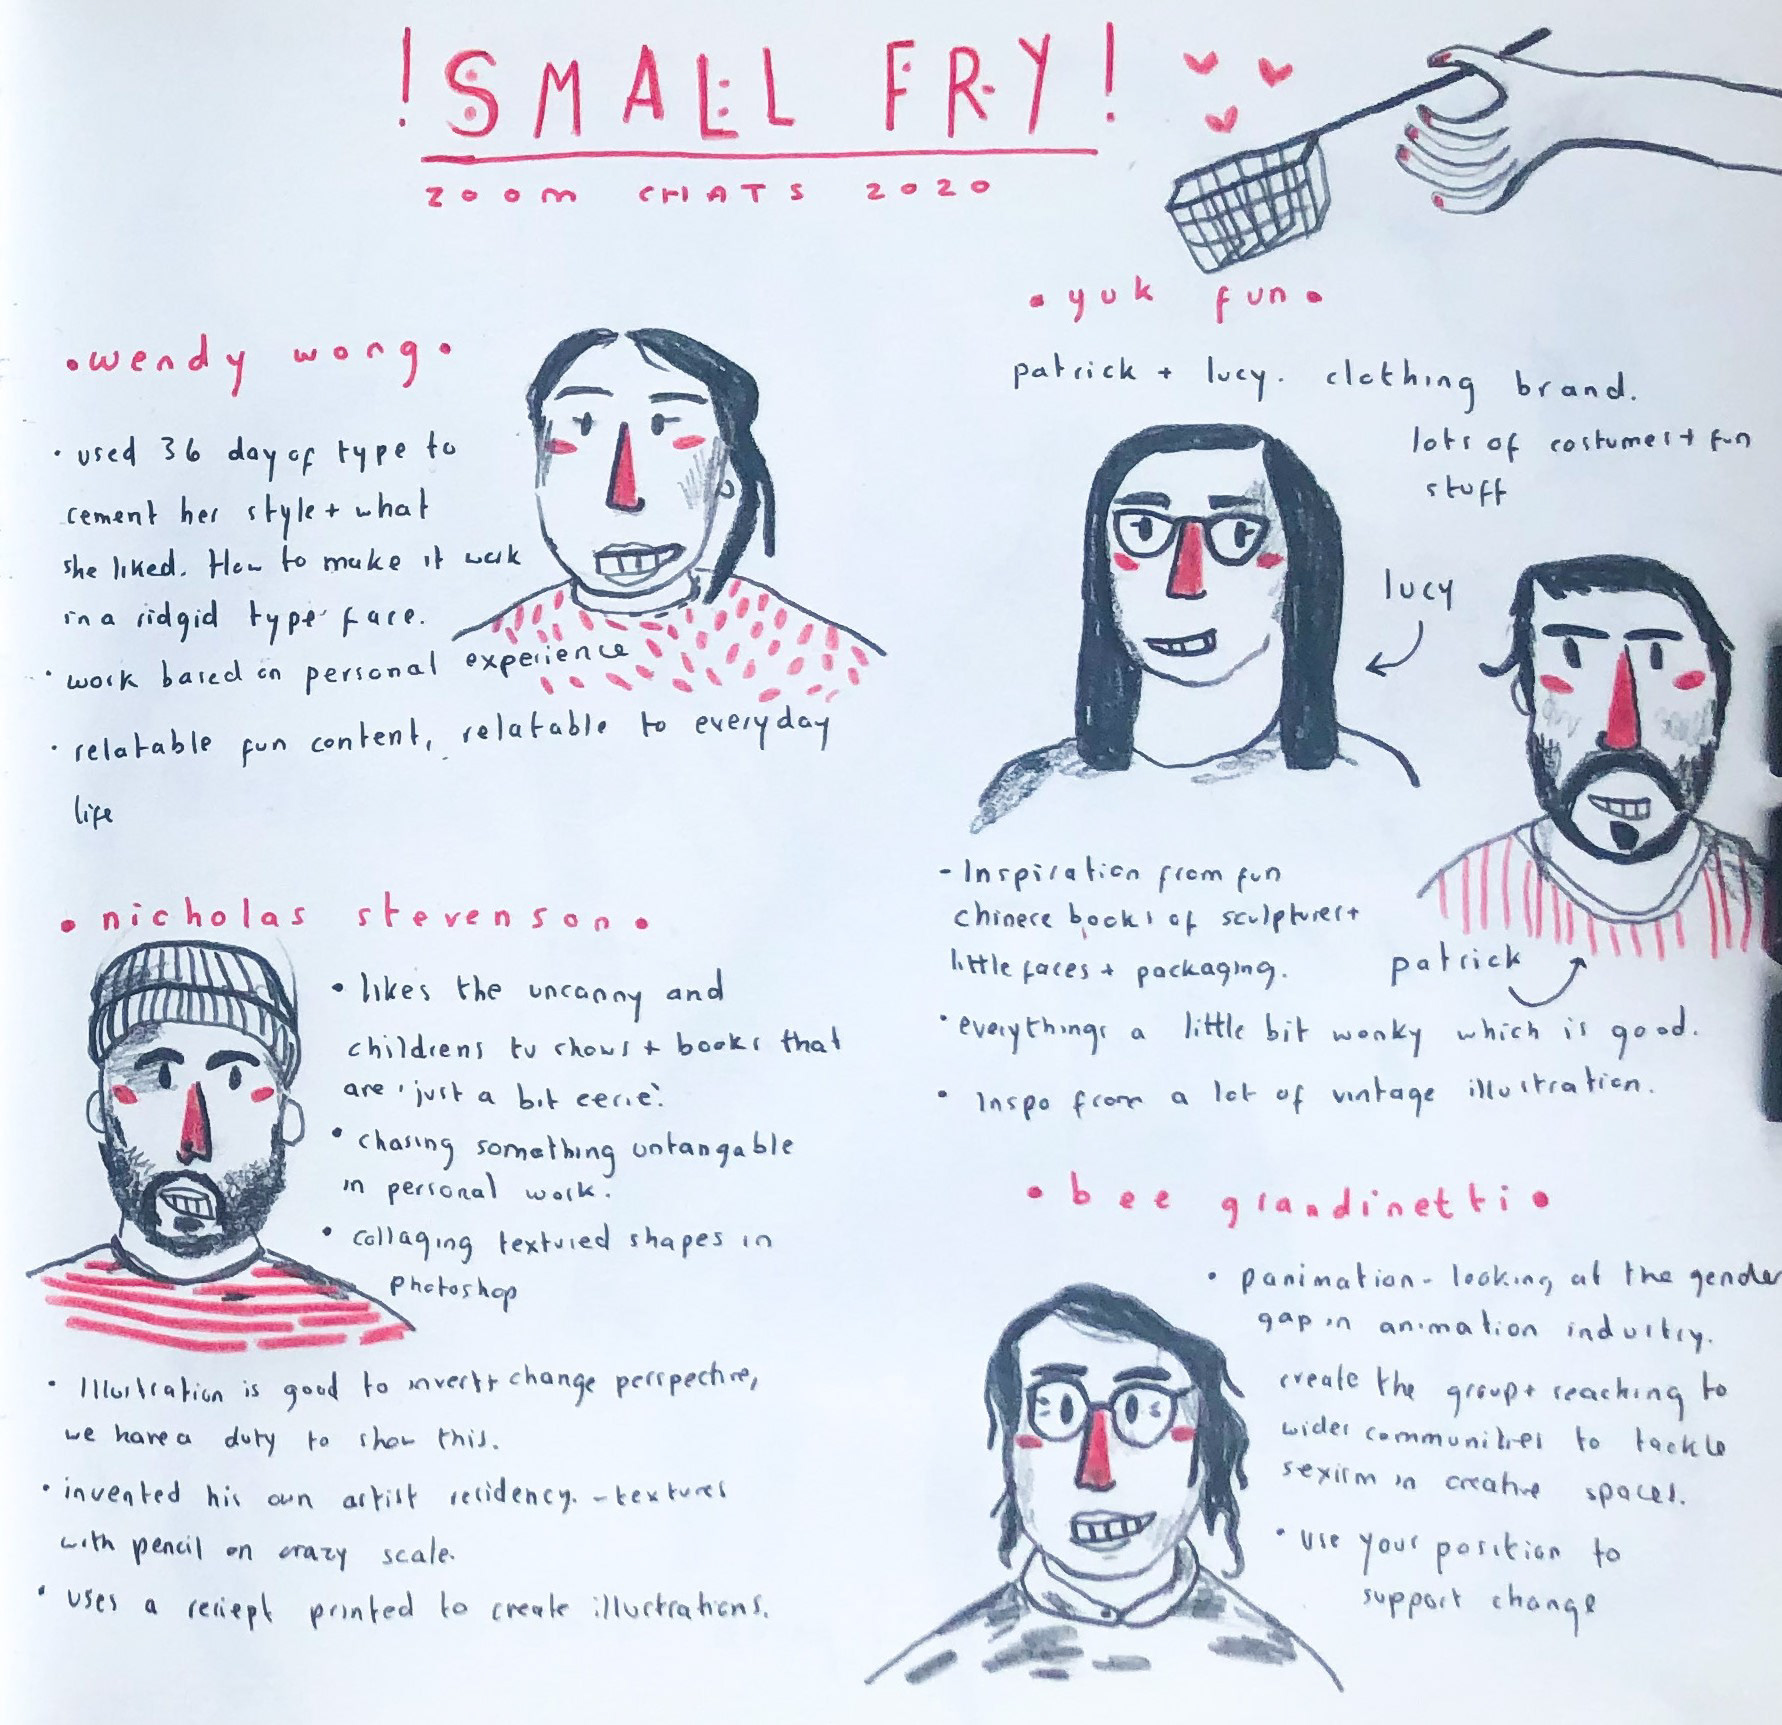 !SMALL FRY!
ZOOM CHATS 2020
•wendy wong•
• used 36 day of type to
cement her style + what
she liked. How to make it work
in a ridgid type face.
• work based on personal experience
• relatable fun content, relatable to everyday
life
• nicholas stevenson •
• likes the uncanny and
childrens tv shows + books that
are 'just a bit eerie'.
• chasing something untangable
in personal work.
• collaging textured shapes in
Photoshop
• Illustration is good to invert + change perspective,
we have a duty to show this.
• invented his own artist residency. - textures
with pencil on crazy scale.
• uses a reciept printed to create illustrations.
• yuk fun •
patrick + lucy. clothing brand.
lots of costumes + fun
stuff
lucy
- Inspiration from fun
chinese books of sculptures +
little faces + packaging.
patrick
• everythings a little bit wonky which is good.
• Inspo from a lot of vintage illustration.
• bee grandinetti •
• panimation - looking at the gender
gap in animation industry.
create the group + reaching to
wider communities to tackle
sexism in creative spaces.
• use your position to
support change